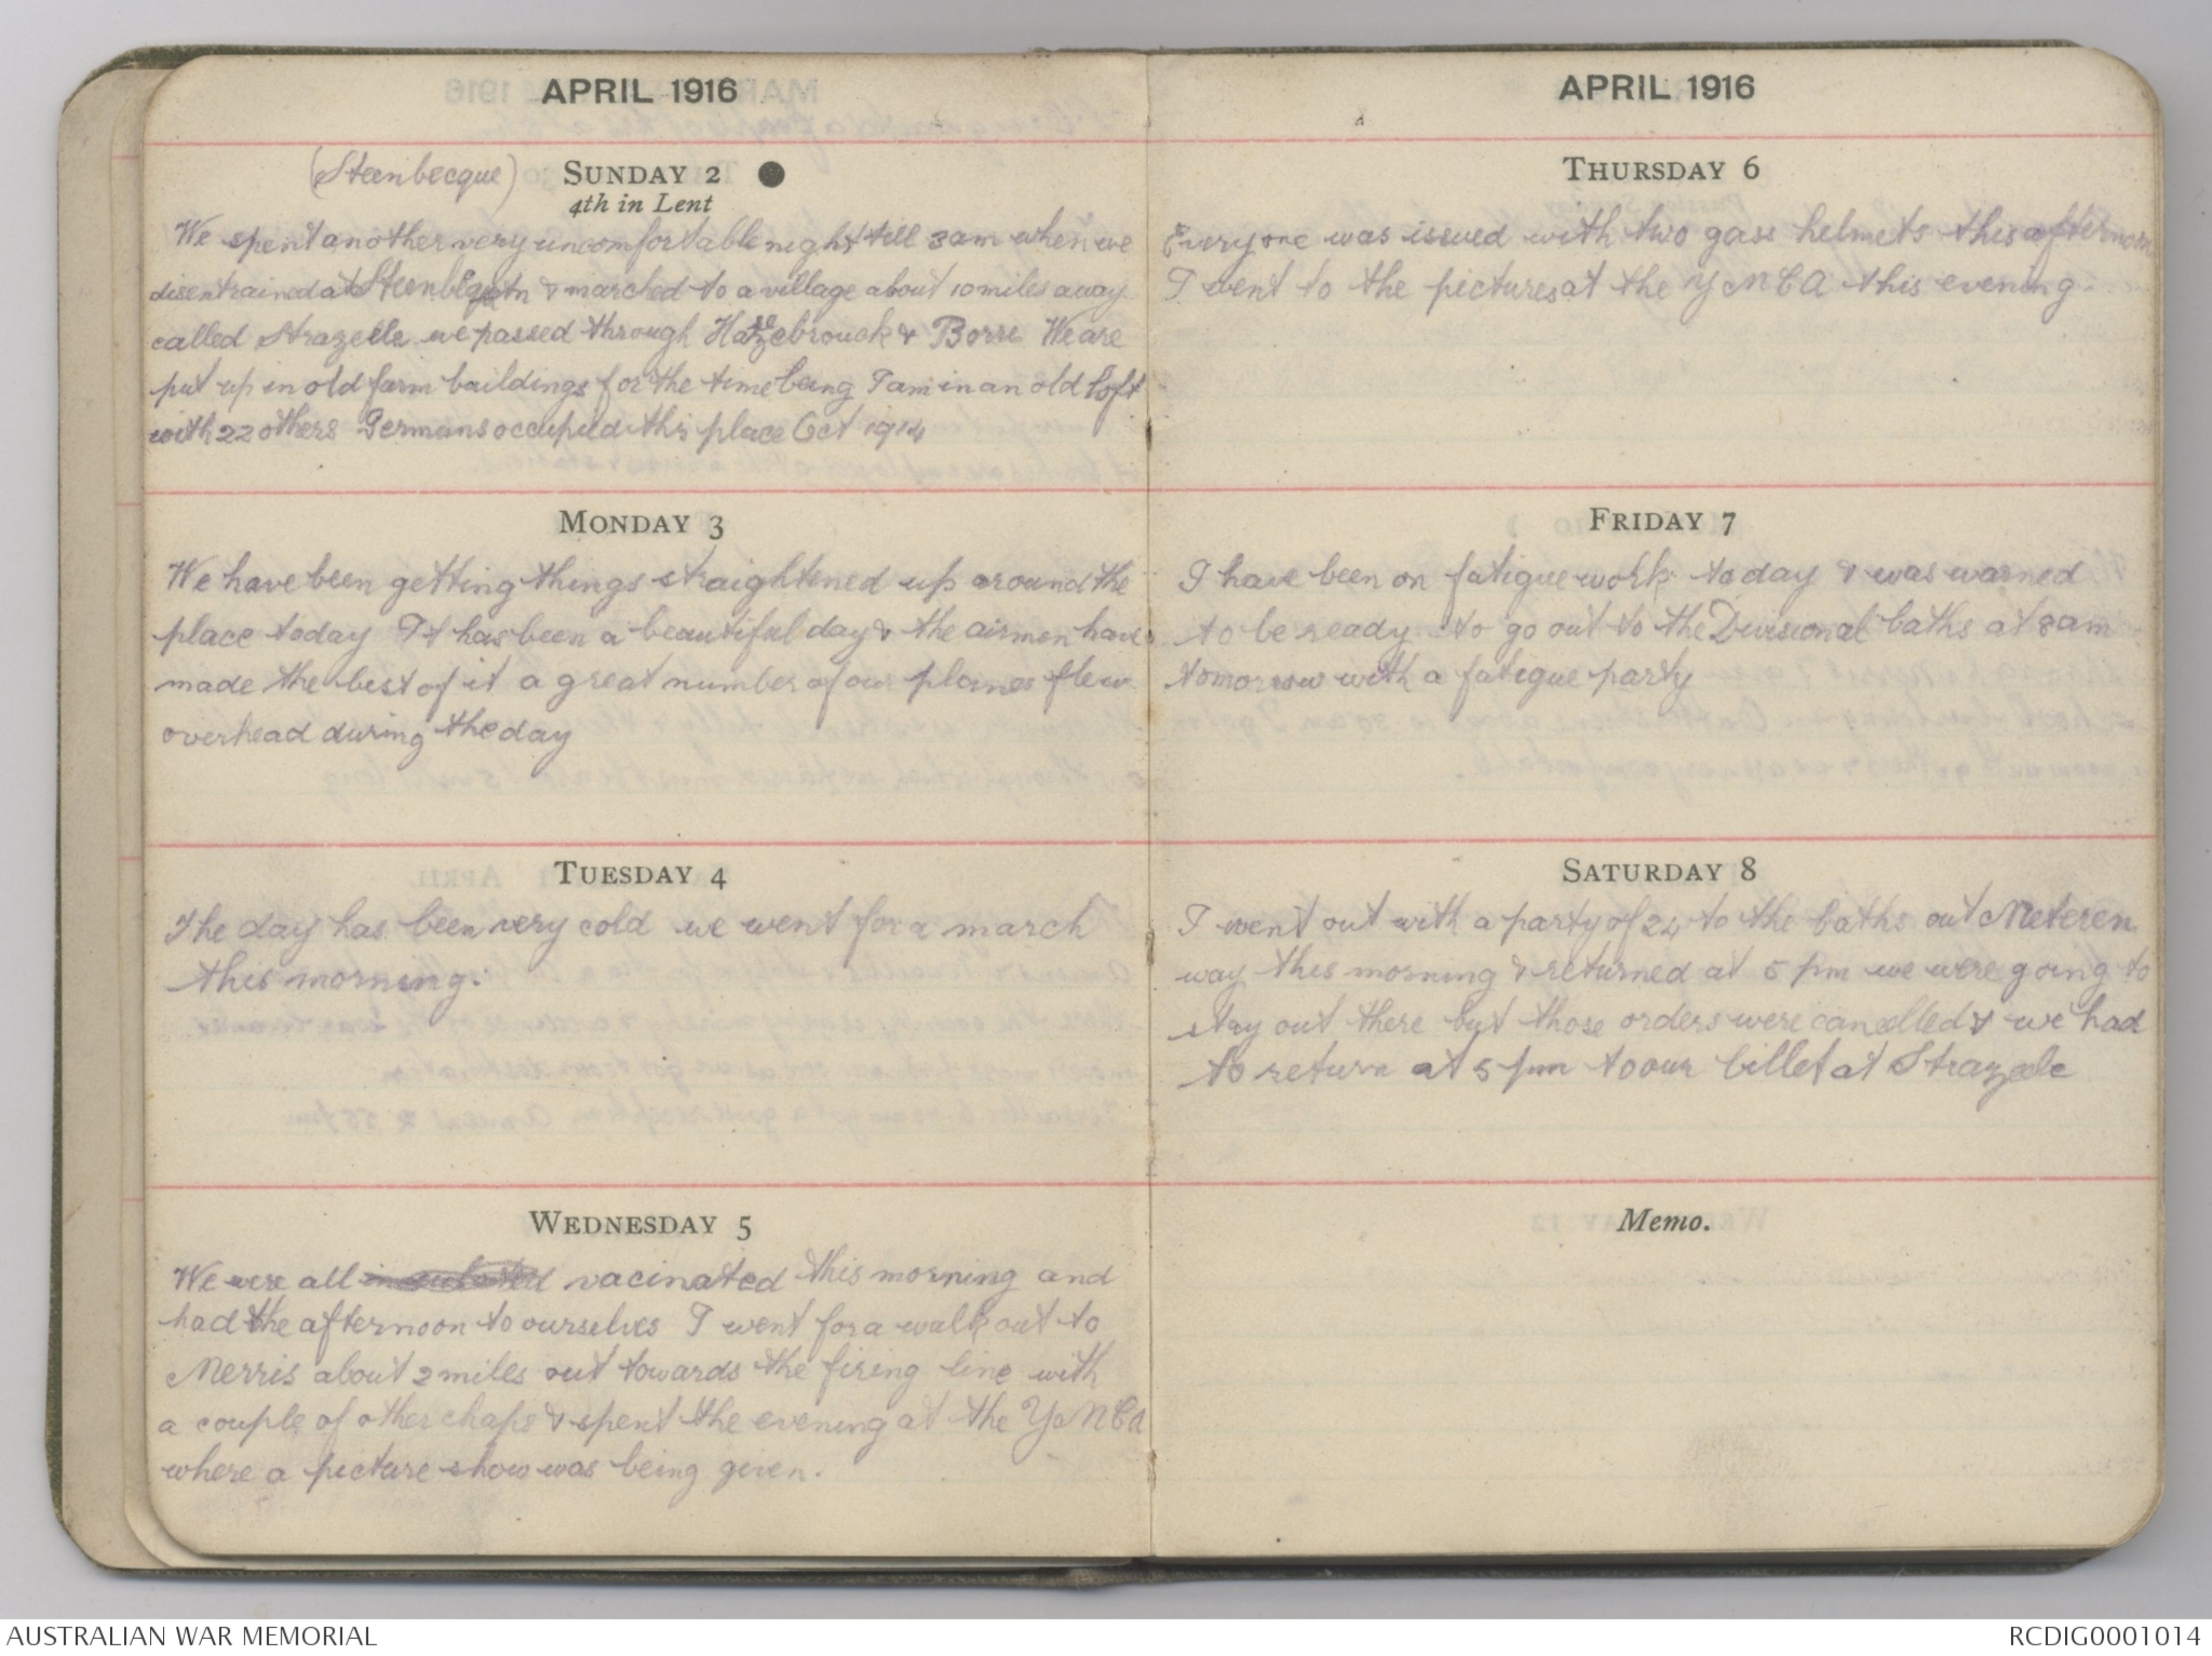 APRIL 1916
(Steenbecque) SUNDAY 2
4th in Lent
We spent another very uncomfortable night till 3am when we
disentrained at & marched to a village about 10 miles away
called Strazeele we passed through Hazebrouck & Borre We are
put up in old farm buildings for the time being I am in an old loft
with 22 others Germans occupied this place Oct 1914
MONDAY 3
We have been getting things straightened up around the
place today It has been a beautiful day & the airmen have
made the best of it a great number of our planes flew
overhead during the day
TUESDAY 4
The day has been very cold we went for a march
this morning.
WEDNESDAY 5
We were all vacinated this morning and
had the afternoon to ourselves I went for a walk out to
Merris about 2 miles out towards the firing line with
a couple of other chaps & spent the evening at the YMCA
where a picture show was being given.
APRIL 1916
THURSDAY 6
Everyone was issued with two gass helmets this afternoon
I went to the pictures at the YMCA this evening.
FRIDAY 7
I have been on fatigue work today & was warned
to be ready to go out to the Divisional baths at 8am
tomorrow with a fatigue party
SATURDAY 8
I went out with a party of 24 to the baths out Meteren
way this morning & returned at 5 pm we were going to
stay out there but those orders were cancelled & we had
to return at 5 pm to our billet at Strazeele
Memo.
AUSTRALIAN WAR MEMORIAL
RCDIG0001014